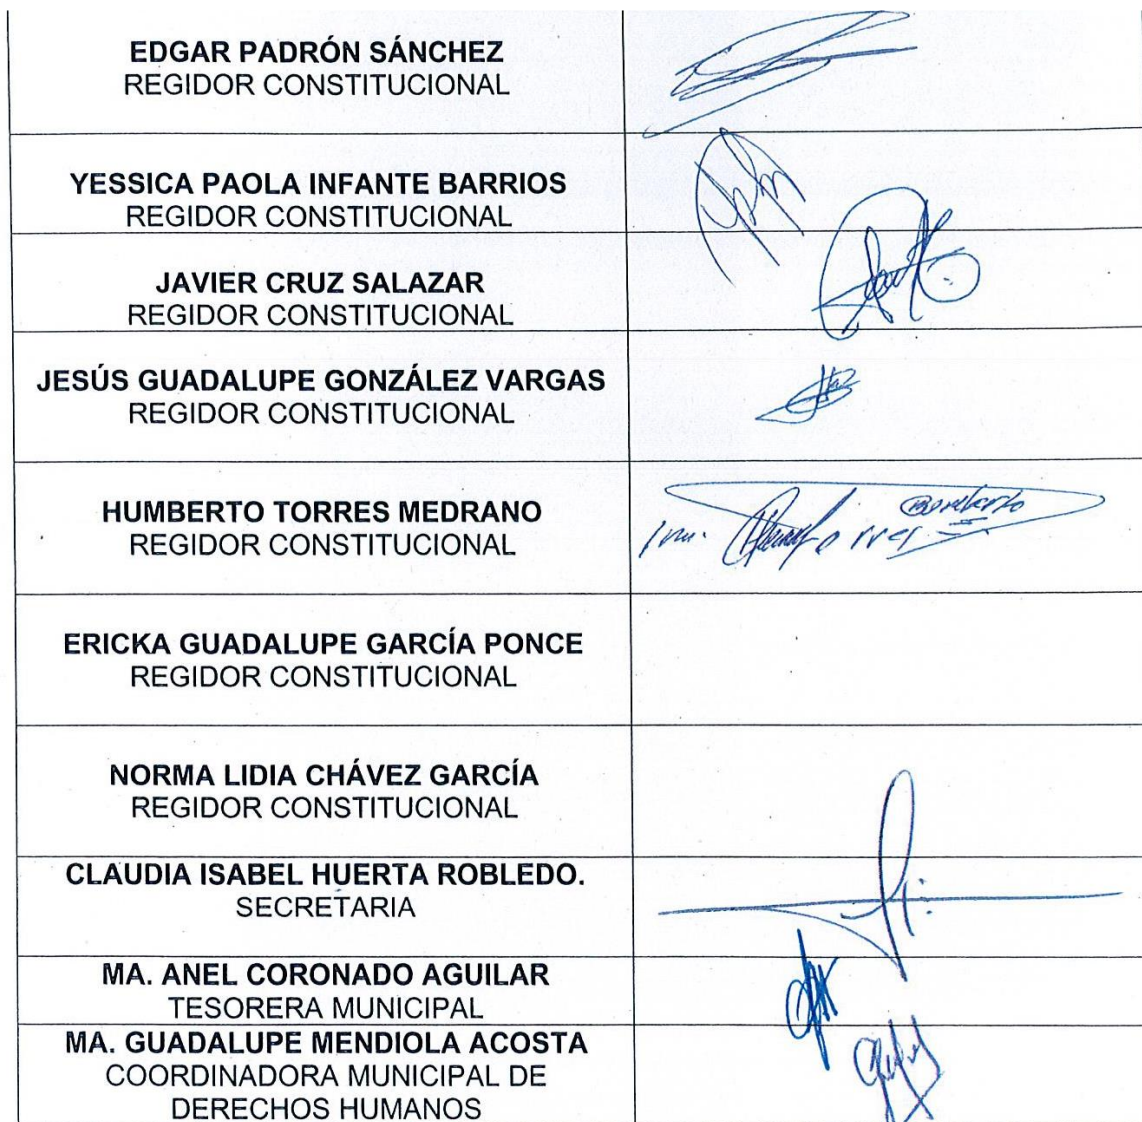 EDGAR PADRÓN SÁNCHEZ
REGIDOR CONSTITUCIONAL
YESSICA PAOLA INFANTE BARRIOS
REGIDOR CONSTITUCIONAL
JAVIER CRUZ SALAZAR
REGIDOR CONSTITUCIONAL
JESÚS GUADALUPE GONZÁLEZ VARGAS
REGIDOR CONSTITUCIONAL
HUMBERTO TORRES MEDRANO
REGIDOR CONSTITUCIONAL
ERICKA GUADALUPE GARCÍA PONCE
REGIDOR CONSTITUCIONAL
NORMA LIDIA CHÁVEZ GARCÍA
REGIDOR CONSTITUCIONAL
CLAUDIA ISABEL HUERTA ROBLEDO.
SECRETARIA
MA. ANEL CORONADO AGUILAR
TESORERA MUNICIPAL
MA. GUADALUPE MENDIOLA ACOSTA
COORDINADORA MUNICIPAL DE
DERECHOS HUMANOS